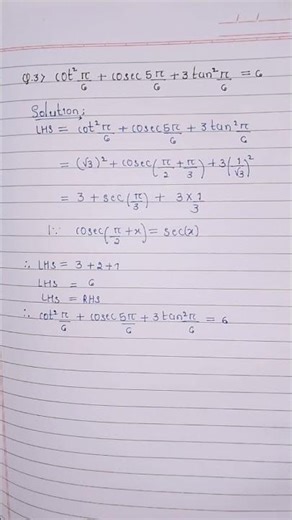 Q.3> cot²π/6 + cosec 5π/6 + 3 tan²π/6 = 6
Solution;
LHS = cot²π/6 + cosec 5π/6 + 3 tan²π/6
= (√3)² + cosec(π/2 + π/3) + 3(1/√3)²
= 3 + sec(π/3) + 3×1/3
∵ cosec(π/2 + x) = sec(x)
∴ LHS = 3+2+1
LHS = 6
LHS = RHS
∴ cot²π/6 + cosec 5π/6 + 3 tan²π/6 = 6